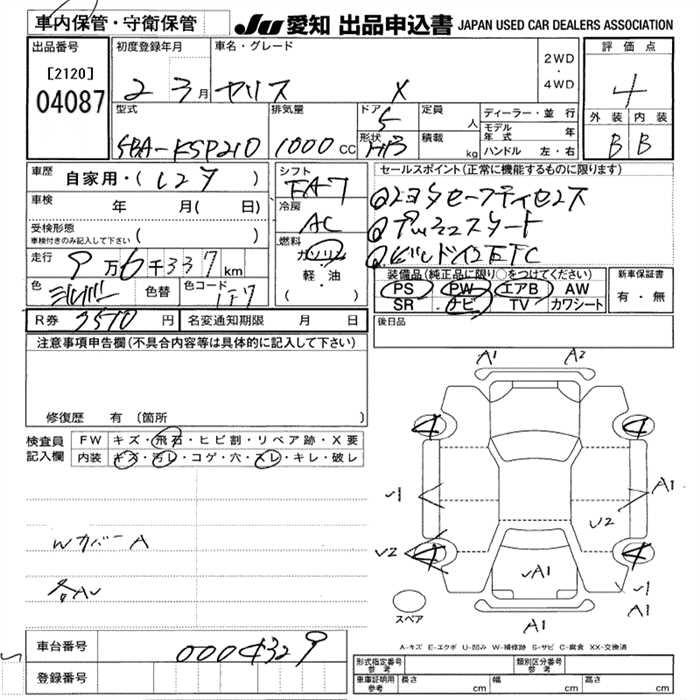 車内保管・守衛保管
JU 愛知 出品申込書 JAPAN USED CAR DEALERS ASSOCIATION
出品番号
[2120]
04087
初度登録年月
2 3月
車名・グレード
ヤリス X
2WD
・
4WD
評価点
4
外装 内装
B B
型式
5BA-KSP210
排気量
1000 CC
ドア
5
形状
HB
定員
人
積載
kg
ディーラー・並行
モデル年式 年
ハンドル 左・右
車歴
自家用・(レンタ)
車検
年 月(日)
受検形態
車検付きのみ記入して下さい ( )
走行
9万6千337km
色
シルバー
色替
色コード
1F7
シフト
FA-7
冷房
AC
燃料
ガソリン
・
軽・油
( )
セールスポイント(正常に機能するものに限ります)
①トヨタセーフティセンス
②プッシュスタート
③ビルドインETC
装備品(純正品に限り○をつけてください)
PS PW エアB AW
SR ナビ TV カワシート
新車保証書
有・無
R券 3570 円
名変通知期限 月 日
後日品
注意事項申告欄(不具合内容等は具体的に記入して下さい)
修復歴 有(箇所
検査員記入欄
FW キズ・飛石・ヒビ割・リペア跡・X要
内装 キズ・汚レ・コゲ・穴・スレ・キレ・破レ
Wカバー A
各AU
A1 A2
4 4
U1 A1
U2
U2 4 4
UA1
U1
A1
A1
スペア
A-キズ E-エクボ U-凹み W-補修跡 S-サビ C-腐食 XX-交換済
車台番号
0004329
登録番号
形式指定番号
参考
類別区分番号
参考
車庫証明用
参考
長さ cm
幅 cm
高さ cm